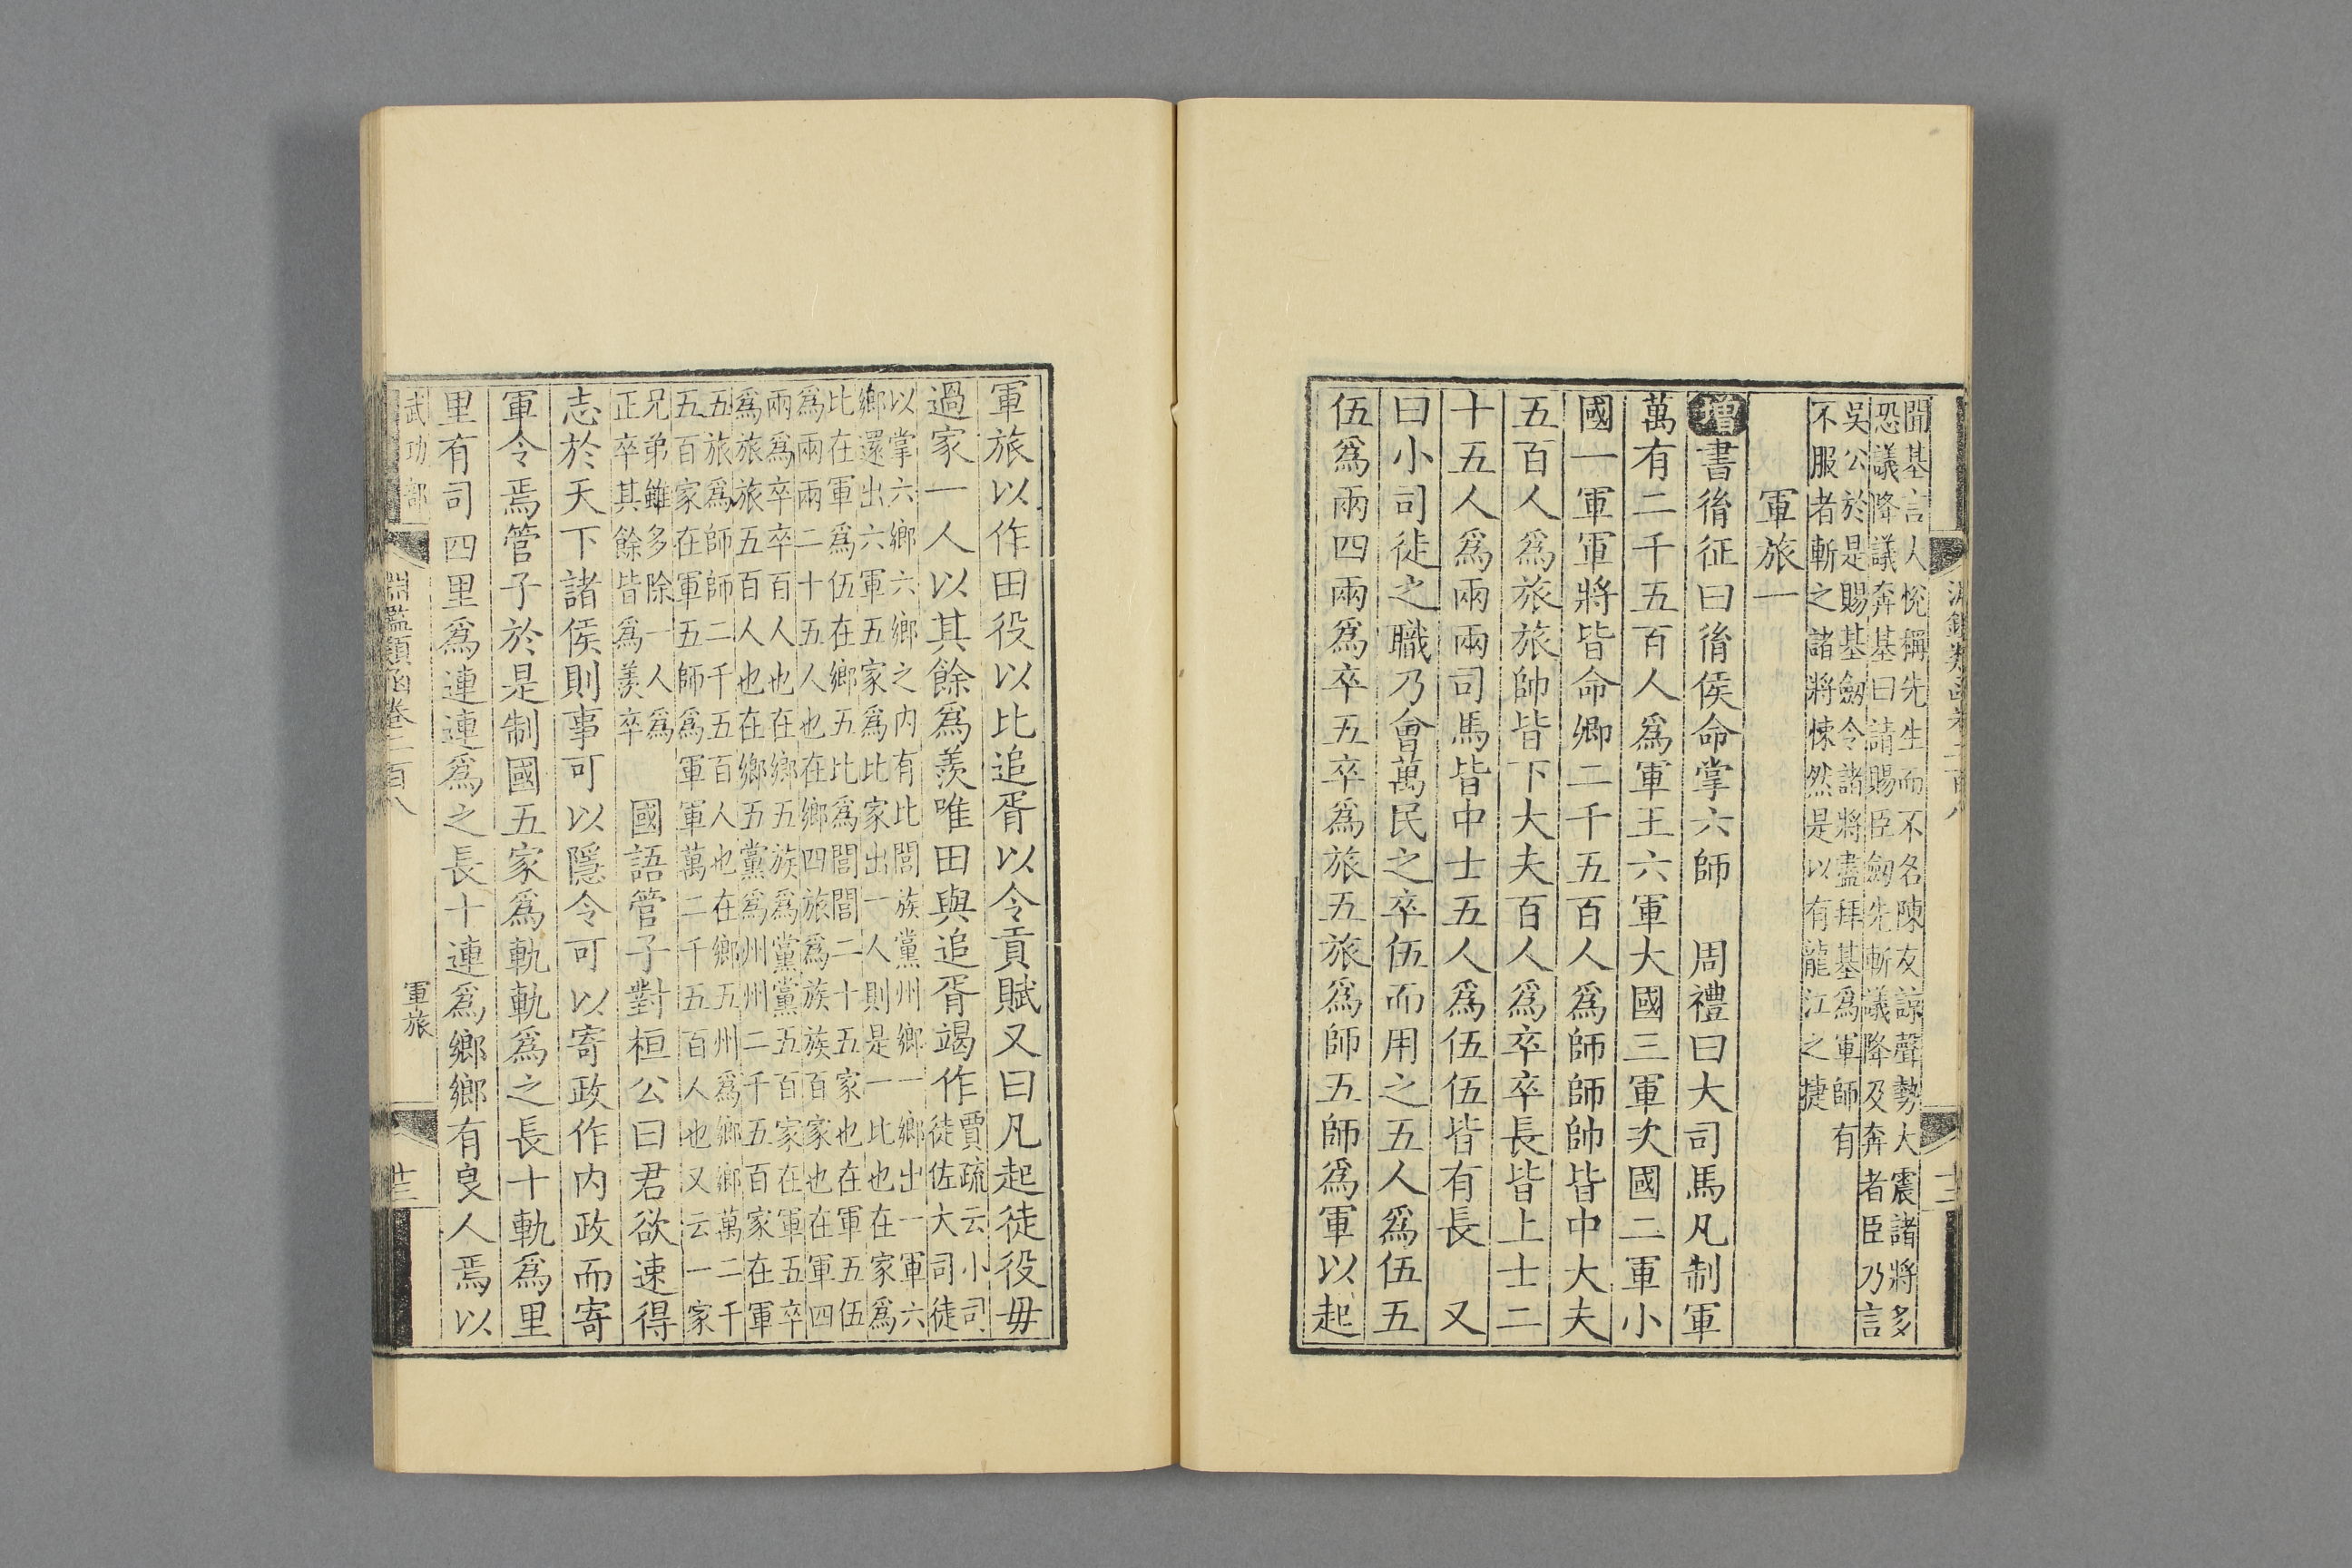 聞基言人悅稱先生而不名陳友諒聲勢大震諸將多
恐議降議奔基曰請賜臣劒先斬議降及奔者臣乃言
吳公於是賜基劒令諸將盡拜基爲軍師有
不服者斬之諸將悚然是以有龍江之捷
軍旅一
增書胤征曰胤侯命掌六師　周禮曰大司馬凡制軍
萬有二千五百人爲軍王六軍大國三軍次國二軍小
國一軍軍將皆命卿二千五百人爲師師帥皆中大夫
五百人爲旅旅帥皆下大夫百人爲卒卒長皆上士二
十五人爲兩兩司馬皆中士五人爲伍伍皆有長　又
曰小司徒之職乃會萬民之卒伍而用之五人爲伍五
伍爲兩四兩爲卒五卒爲旅五旅爲師五師爲軍以起
軍旅以作田役以比追胥以令貢賦又曰凡起徒役毋
過家一人以其餘爲羨唯田與追胥竭作
賈疏云小司
徒佐大司徒
以掌六鄉六鄉之內有比閭族黨州鄉一鄉出一軍六
鄉還出六軍五家爲比家出一人則是一比也在家爲
比在軍爲伍在鄉五比爲閭閭二十五家也在軍五伍
爲兩兩二十五人也在鄉四旅爲族族百家也在軍四
兩爲卒卒百人也在鄉五族爲黨黨五百家在軍五卒
爲旅旅五百人也在鄉五黨爲州州二千五百家在軍
五旅爲師師二千五百人也在鄉五州爲鄉鄉萬二千
五百家在軍五師爲軍軍萬二千五百人也又云一家
兄弟雖多除一人爲
正卒其餘皆爲羨卒
國語管子對桓公曰君欲速得
志於天下諸侯則事可以隱令可以寄政作內政而寄
軍令焉管子於是制國五家爲軌軌爲之長十軌爲里
里有司四里爲連連爲之長十連爲鄉鄉有良人焉以
武功部
淵鑑類函卷二百八
軍旅